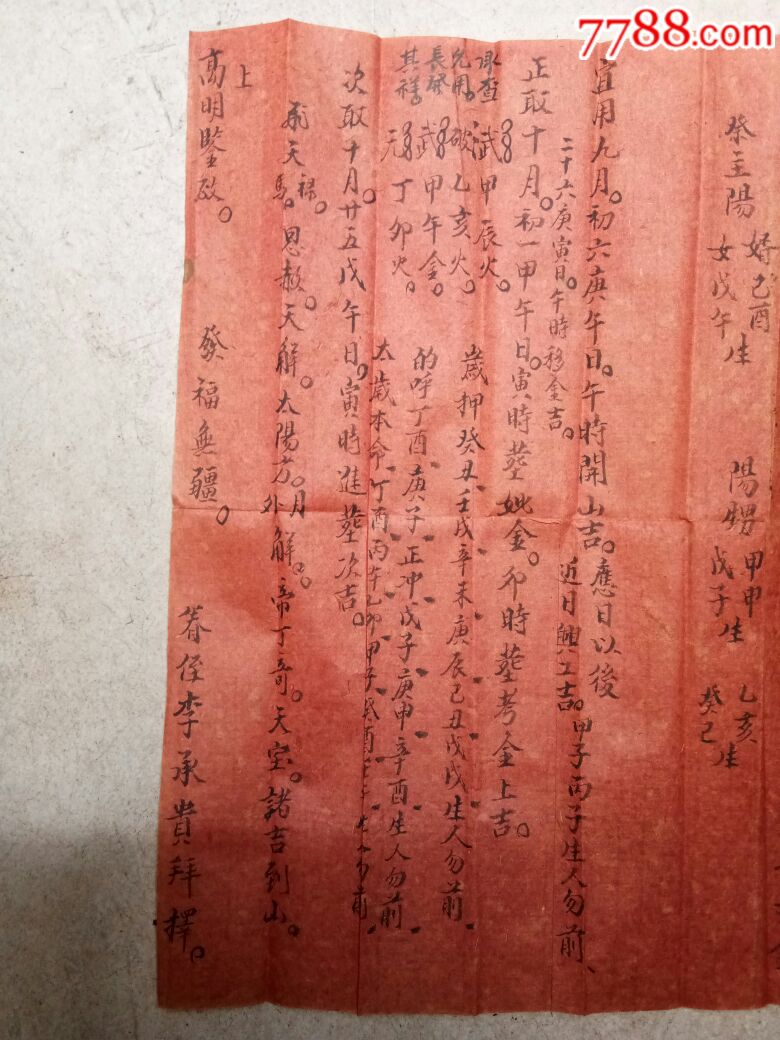 7788.com
祭主陽 婿己酉
女戊午 生
陽甥 甲申
戊子 生
乙亥
癸巳 生
宜用九月。初六庚午日。午時開山吉。應日以後
二十六庚寅日。午時移金吉。
近日興工吉。甲子丙子生人勿前、
正取十月。初一甲午日。寅時塟妣金。卯時塟考金上吉。
取查
允用。
長發
其祥。
甲辰火。
破乙亥火。
武甲午金。
丁卯火。
歲押癸丑壬戌辛未庚辰己丑戊戌生人勿前
的呼丁酉、庚子、正冲戊子、庚申、辛酉生人勿前
太歲本命丁酉丙午乙卯甲子癸酉
生人勿前
次取十月廿五戊午日。寅時進塟次吉。
天祿。
馬。恩赦。天解。太陽方。月解。外帝丁奇。天宝。諸吉到山。
上
高明鑒啟。 發福無疆。 眷侄李承貴拜擇。